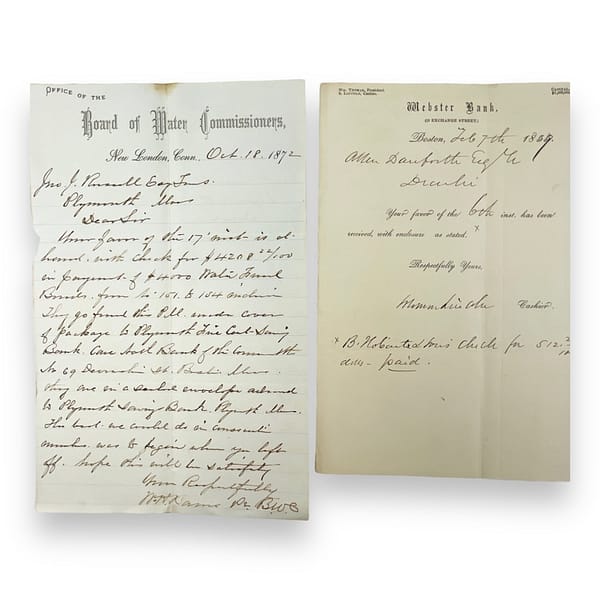 OFFICE OF THE
Board of Water Commissioners,
New London, Conn., Oct. 18. 1872
Jno. J. Russell Esq Treas
Plymouth Mass
Dear Sir
Your favor of the 17' inst is at
hand. with check for $4208
in payment of $4000 Water Fund
Bonds. from No 101. to 104 inclusive
They go from this P.M. under cover
of package to Plymouth Five Cent Saving
Bank. Care Natl Bank of the Commonwealth
No 69 Devonshire St. Boston Mass.
they are in a sealed envelope
to Plymouth Saving Bank. Plymouth Mass.
The best we could do in consecutive
numbers was to begin when you left
off. hope this will be satisfactory
Yours Respectfully
B.W.C
Wm. Thomas, President
S. Lincoln, Cashier.
Webster Bank,
(39 EXCHANGE STREET,)
Boston, Feb 7th 18
Allen Danforth Esq Tr
Dear Sir
Your favor of the 6th inst. has been
received, with enclosure as stated. x
Respectfully Yours,
Lincoln Cashier.
x B. Hobart & Sons check for 512
duly paid.